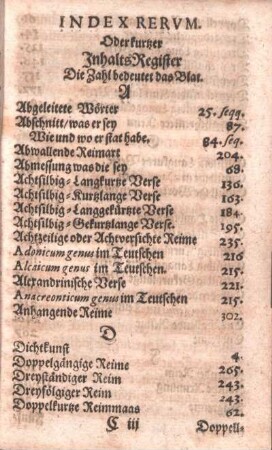 INDEX RERVM.
Oder kurtzer
Inhalts Register
Die Zahl bedeutet das Blat.
A
Abgeleitete Wörter 25. seqq.
Abschnitt/was er sey 87.
Wie und wo er stat habe. 84. seq.
Abwallende Reimart 204.
Abmessung was die sey 68.
Achtsilbig-Langkurtze Verse 136.
Achtsilbig-Kurtzlange Verse 163.
Achtsilbig-Langgekürtzte Verse 184.
Achtsilbig-Gekurtzlange Verse. 195.
Achtzeilige oder Achtversichte Reime 235.
Adonicum genus im Teutschen 216
Alcaicum genus im Teutschen. 215.
Alexandrinische Verse 221.
Anacreonticum genus im Teutschen 215.
Anhangende Reime 302.
D
Dichtkunst 4.
Doppelgängige Reime 265.
Dreyständiger Reim 243.
Dreyfölgiger Reim 243.
Doppelkurtze Reimmaas 62.
C iii Doppell-